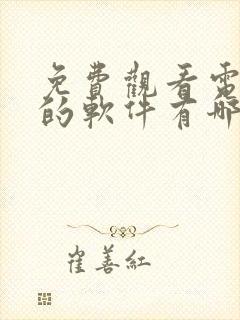 免費觀看電
的軟件有哪
崔善紅